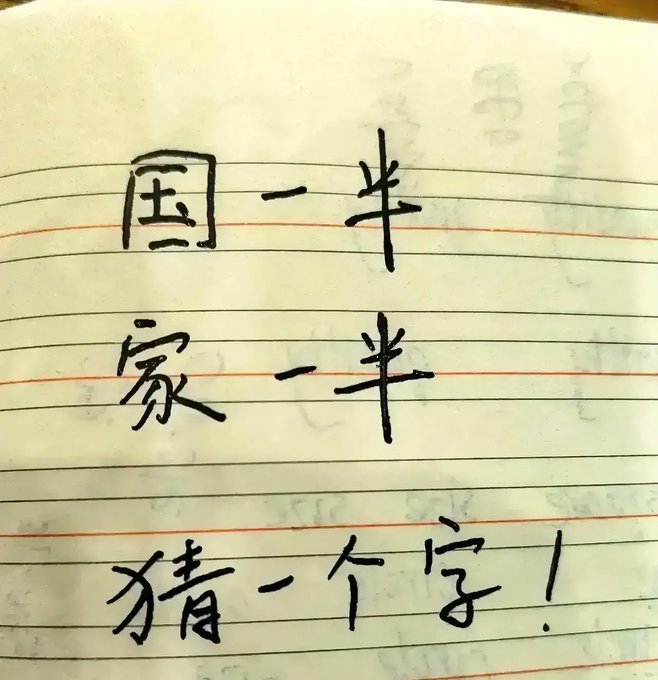 国一半
家一半
猜一个字!